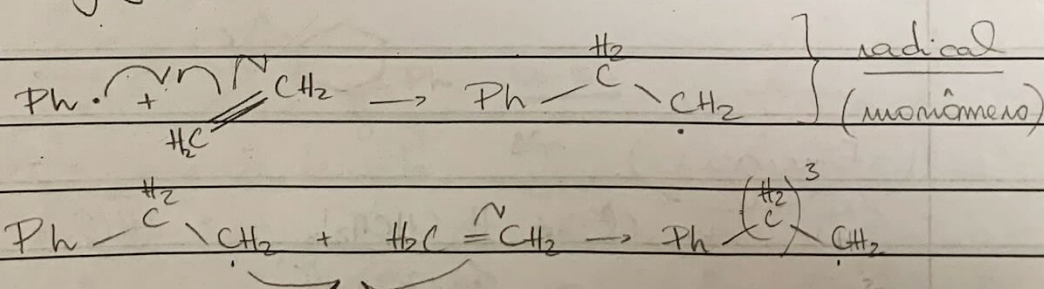 Ph· + H₂C=CH₂ → Ph–CH₂–CH₂· } radical
(monômero)
Ph–CH₂–CH₂· + H₂C=CH₂ → Ph–(CH₂)³–CH₂·